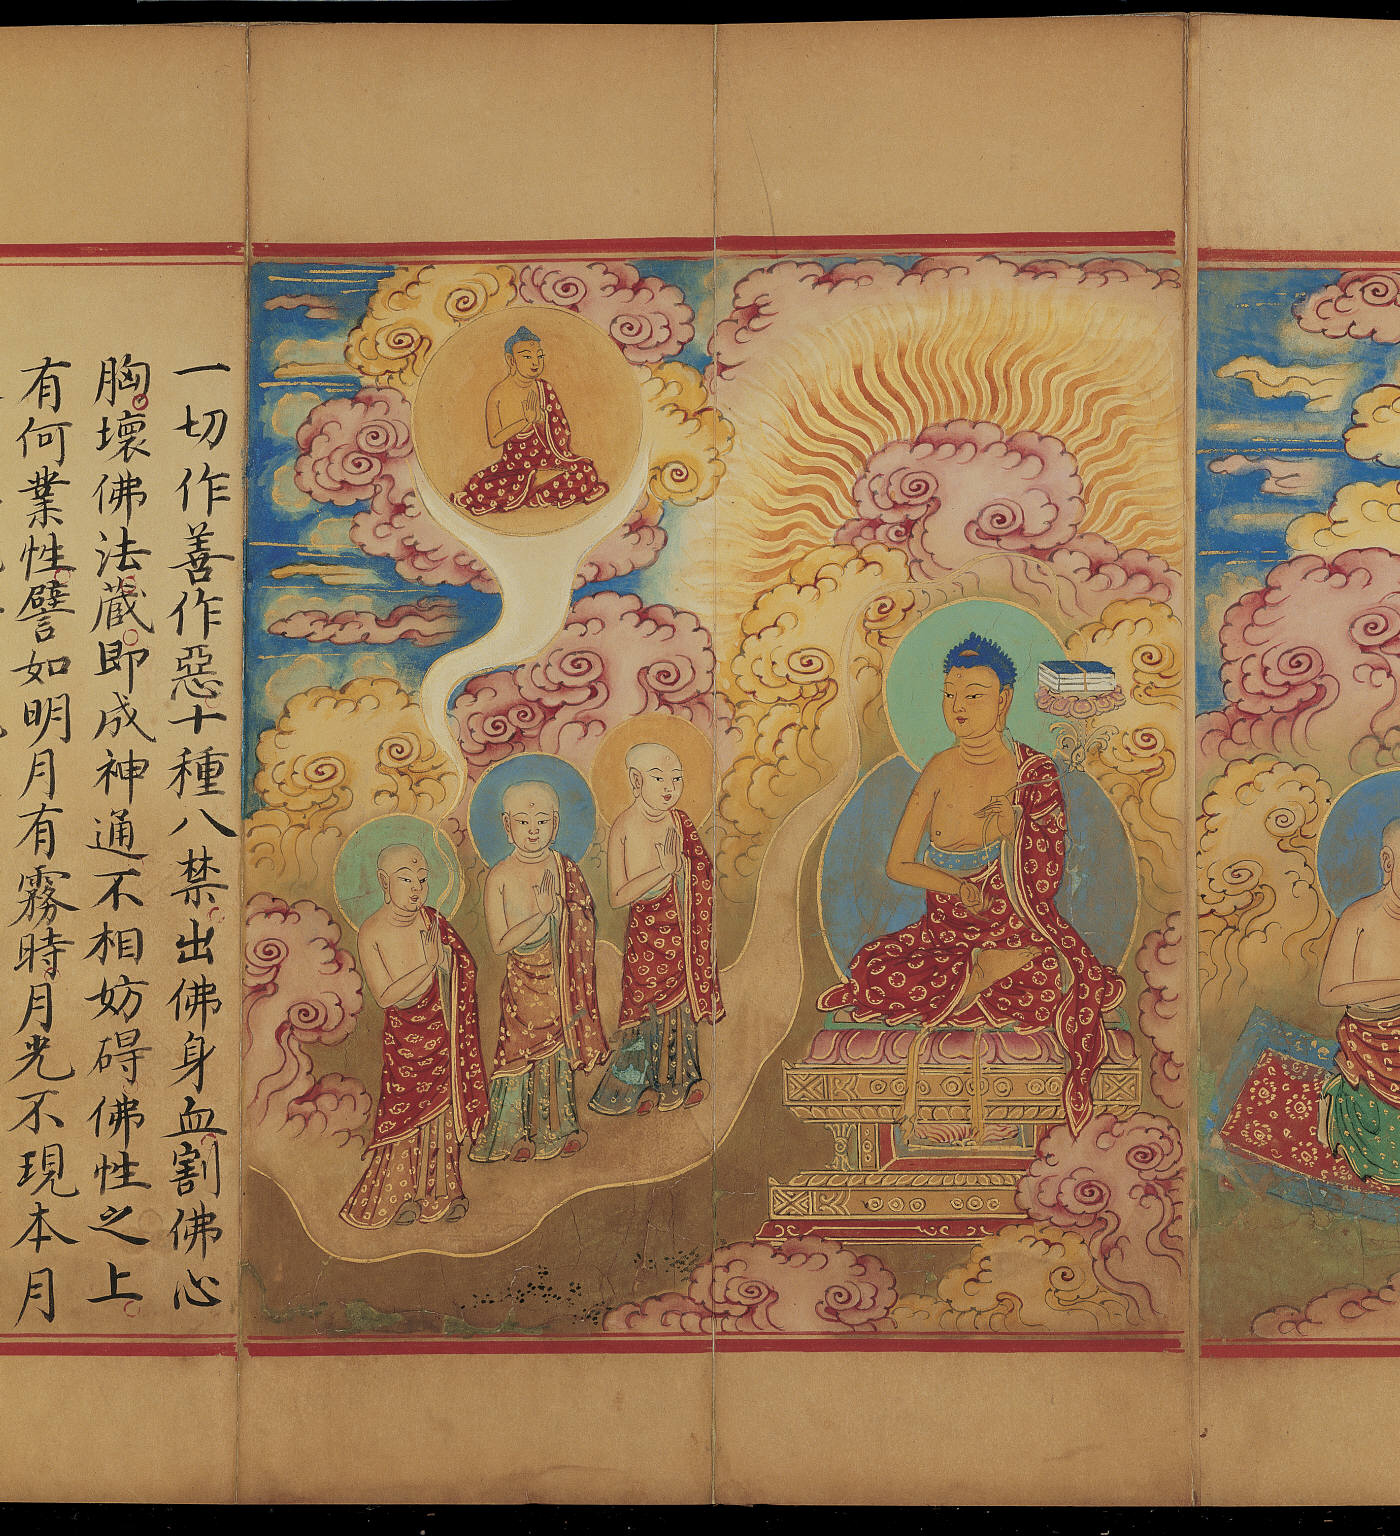 一切作善作惡十種八禁出佛身血割佛心
胸壞佛法藏即成神通不相妨碍佛性之上
有何業性譬如明月有霧時月光不現本月